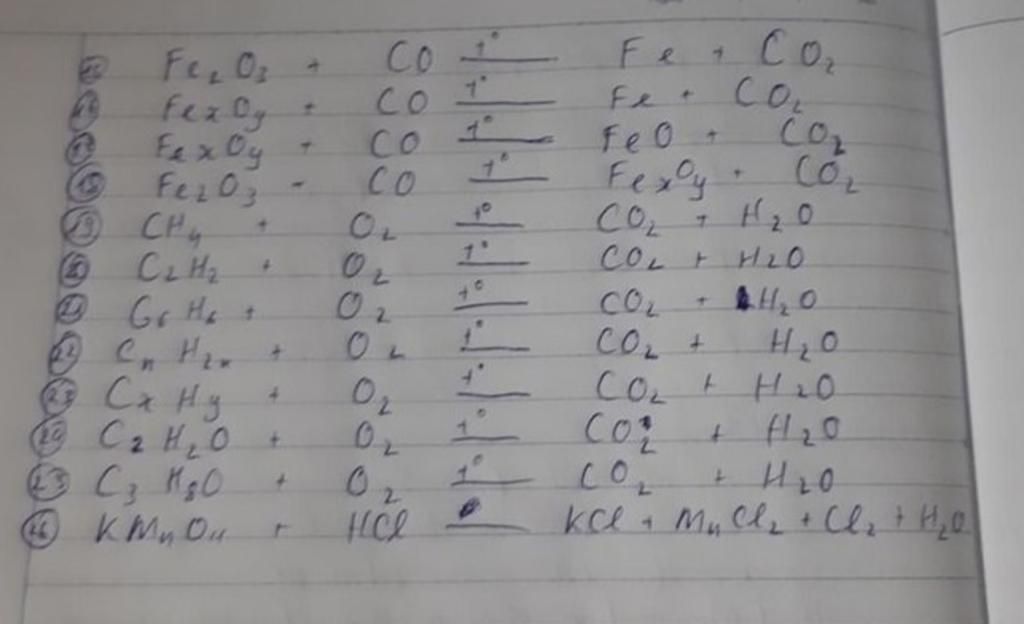 Fe₂O₃ + CO t° Fe + CO₂
FexOy + CO t° Fe + CO₂
⑰ FexOy + CO t° FeO + CO₂
⑱ Fe₂O₃ - CO t° FexOy + CO₂
⑲ CH₄ + O₂ t° CO₂ + H₂O
⑳ C₂H₂ + O₂ t° CO₂ + H₂O
㉑ C₆H₆ + O₂ t° CO₂ + H₂O
㉒ CₙH₂ₙ + O₂ t° CO₂ + H₂O
㉓ CxHy + O₂ t° CO₂ + H₂O
㉔ C₂H₂O + O₂ t° CO₂ + H₂O
㉕ C₃H₈O + O₂ t° CO₂ + H₂O
㉖ KMnO₄ + HCl KCl + MnCl₂ + Cl₂ + H₂O